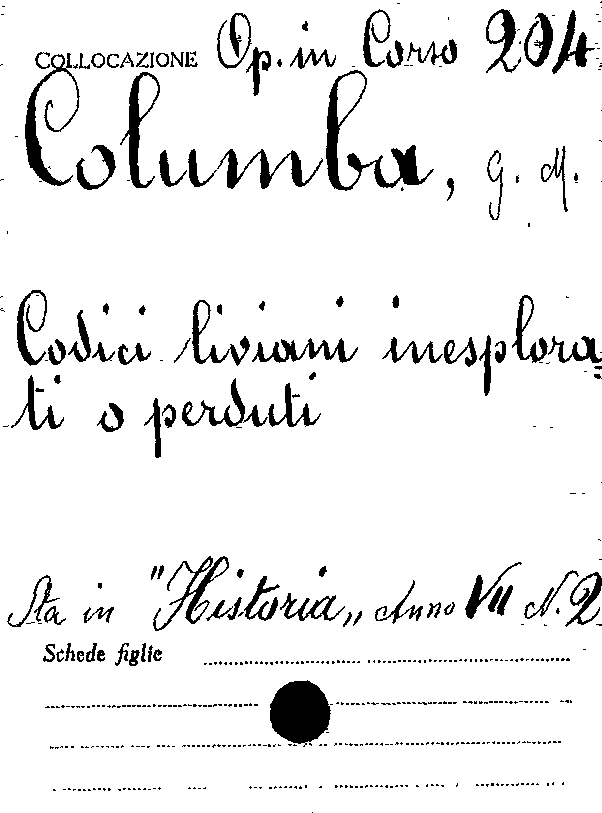 COLLOCAZIONE Op. in Corso 204
Columba, G. M.
Codici liviani inesplora=
ti o perduti
Sta in "Historia„ Anno VII N. 2
Schede figlie